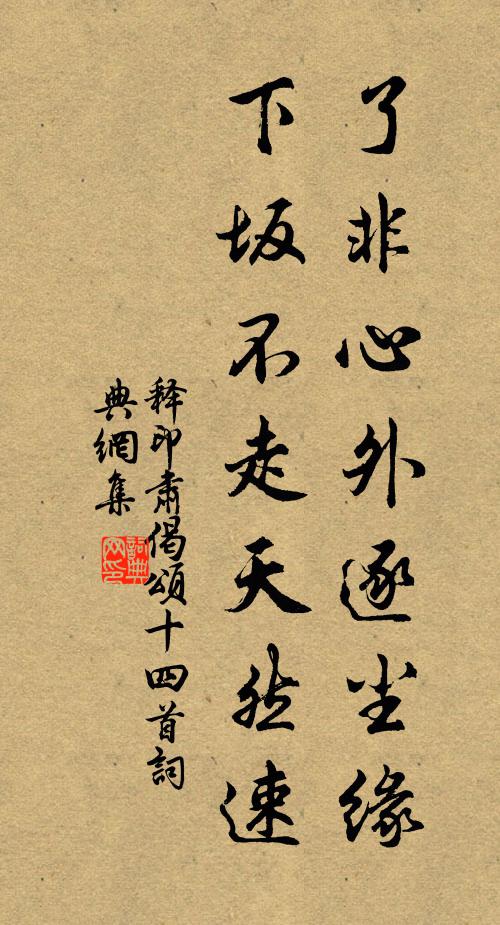 了非心外逐尘缘
下坂不走天然速
释印肃偈颂十四首詞
典網集
詞典網印